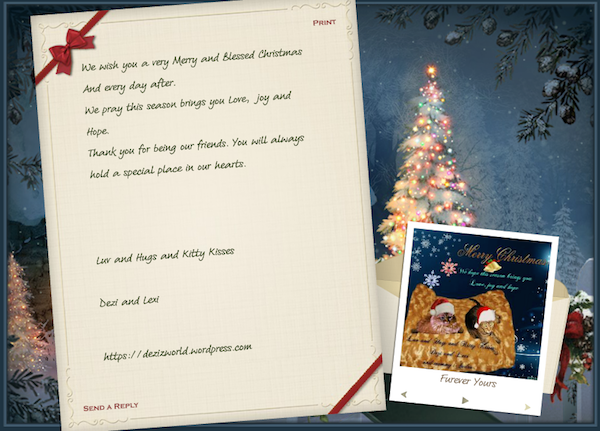 PRINT
We wish you a very Merry and Blessed Christmas
And every day after.
We pray this season brings you Love, joy and
Hope.
Thank you for being our friends. You will always
hold a special place in our hearts.
Luv and Hugs and Kitty Kisses
Dezi and Lexi
https://dezizworld.wordpress.com
SEND A REPLY
Merry Christmas
We hope this season brings you
Love, joy and hope
Furever Yours